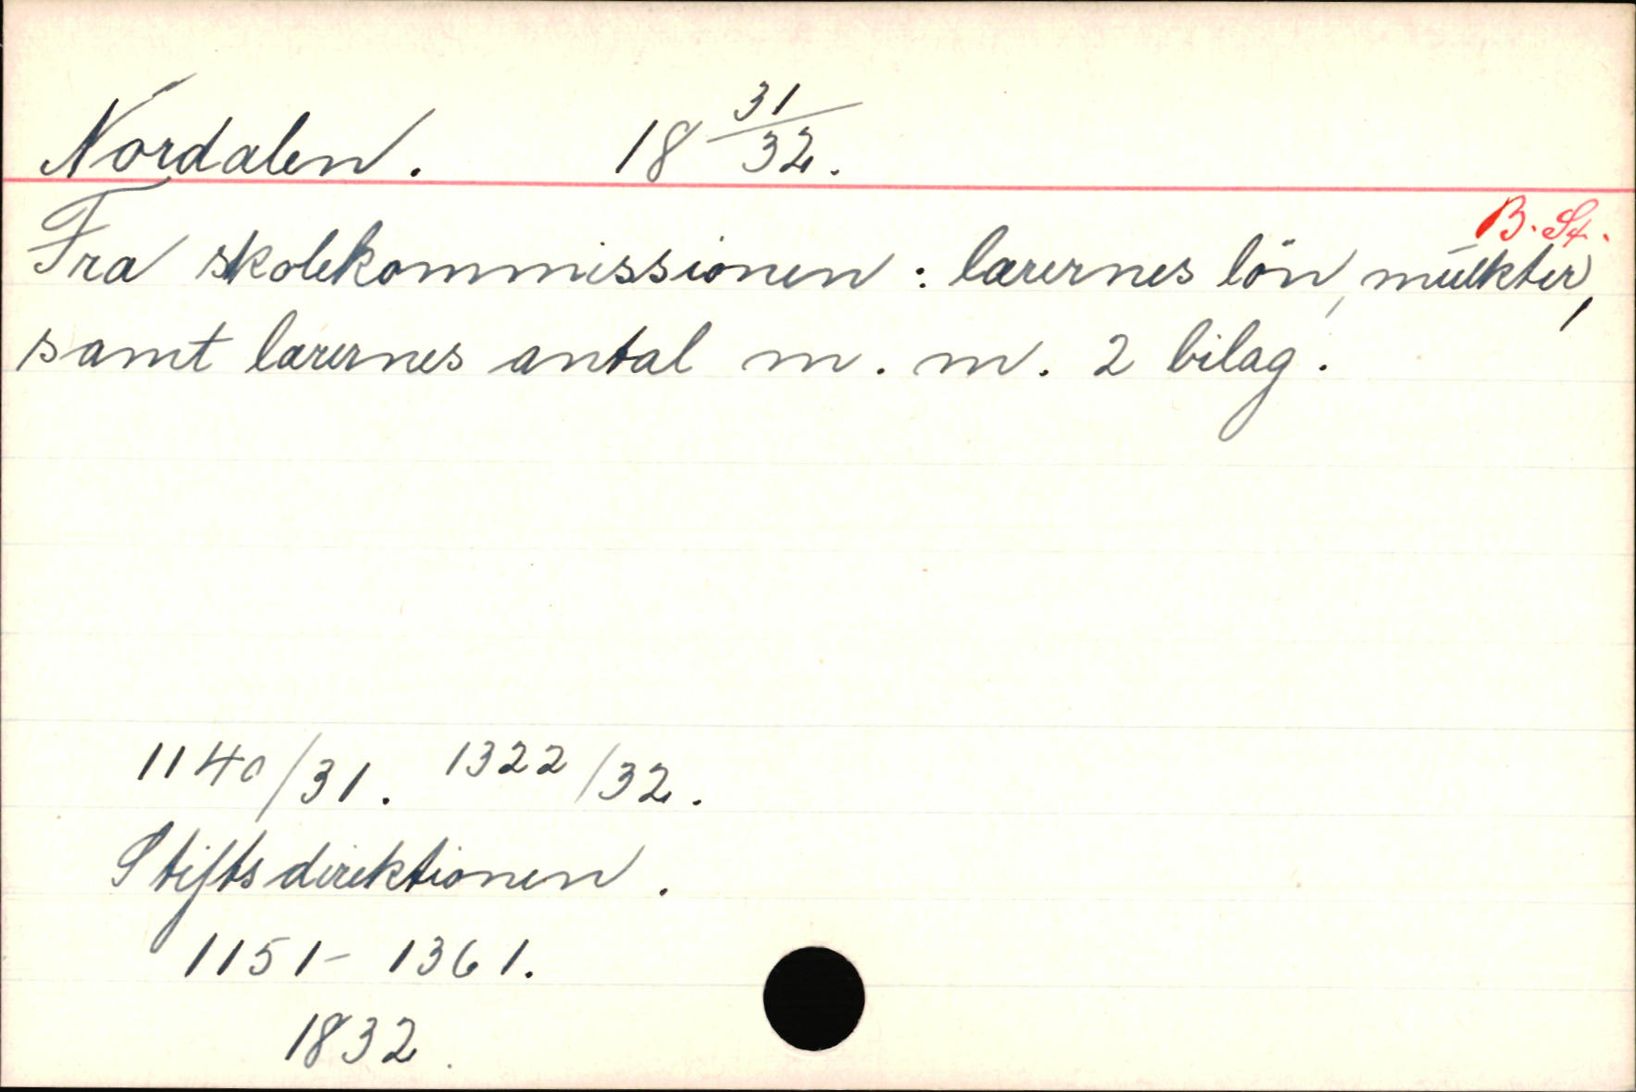 Nordalen. 18 31/32.
B. St.
Fra skolekommissionen: lærernes lön, mulkter,
samt lærernes antal m. m. 2 bilag.
1140/31. 1322/32.
Stiftsdirektionen.
1151-1361.
1832.